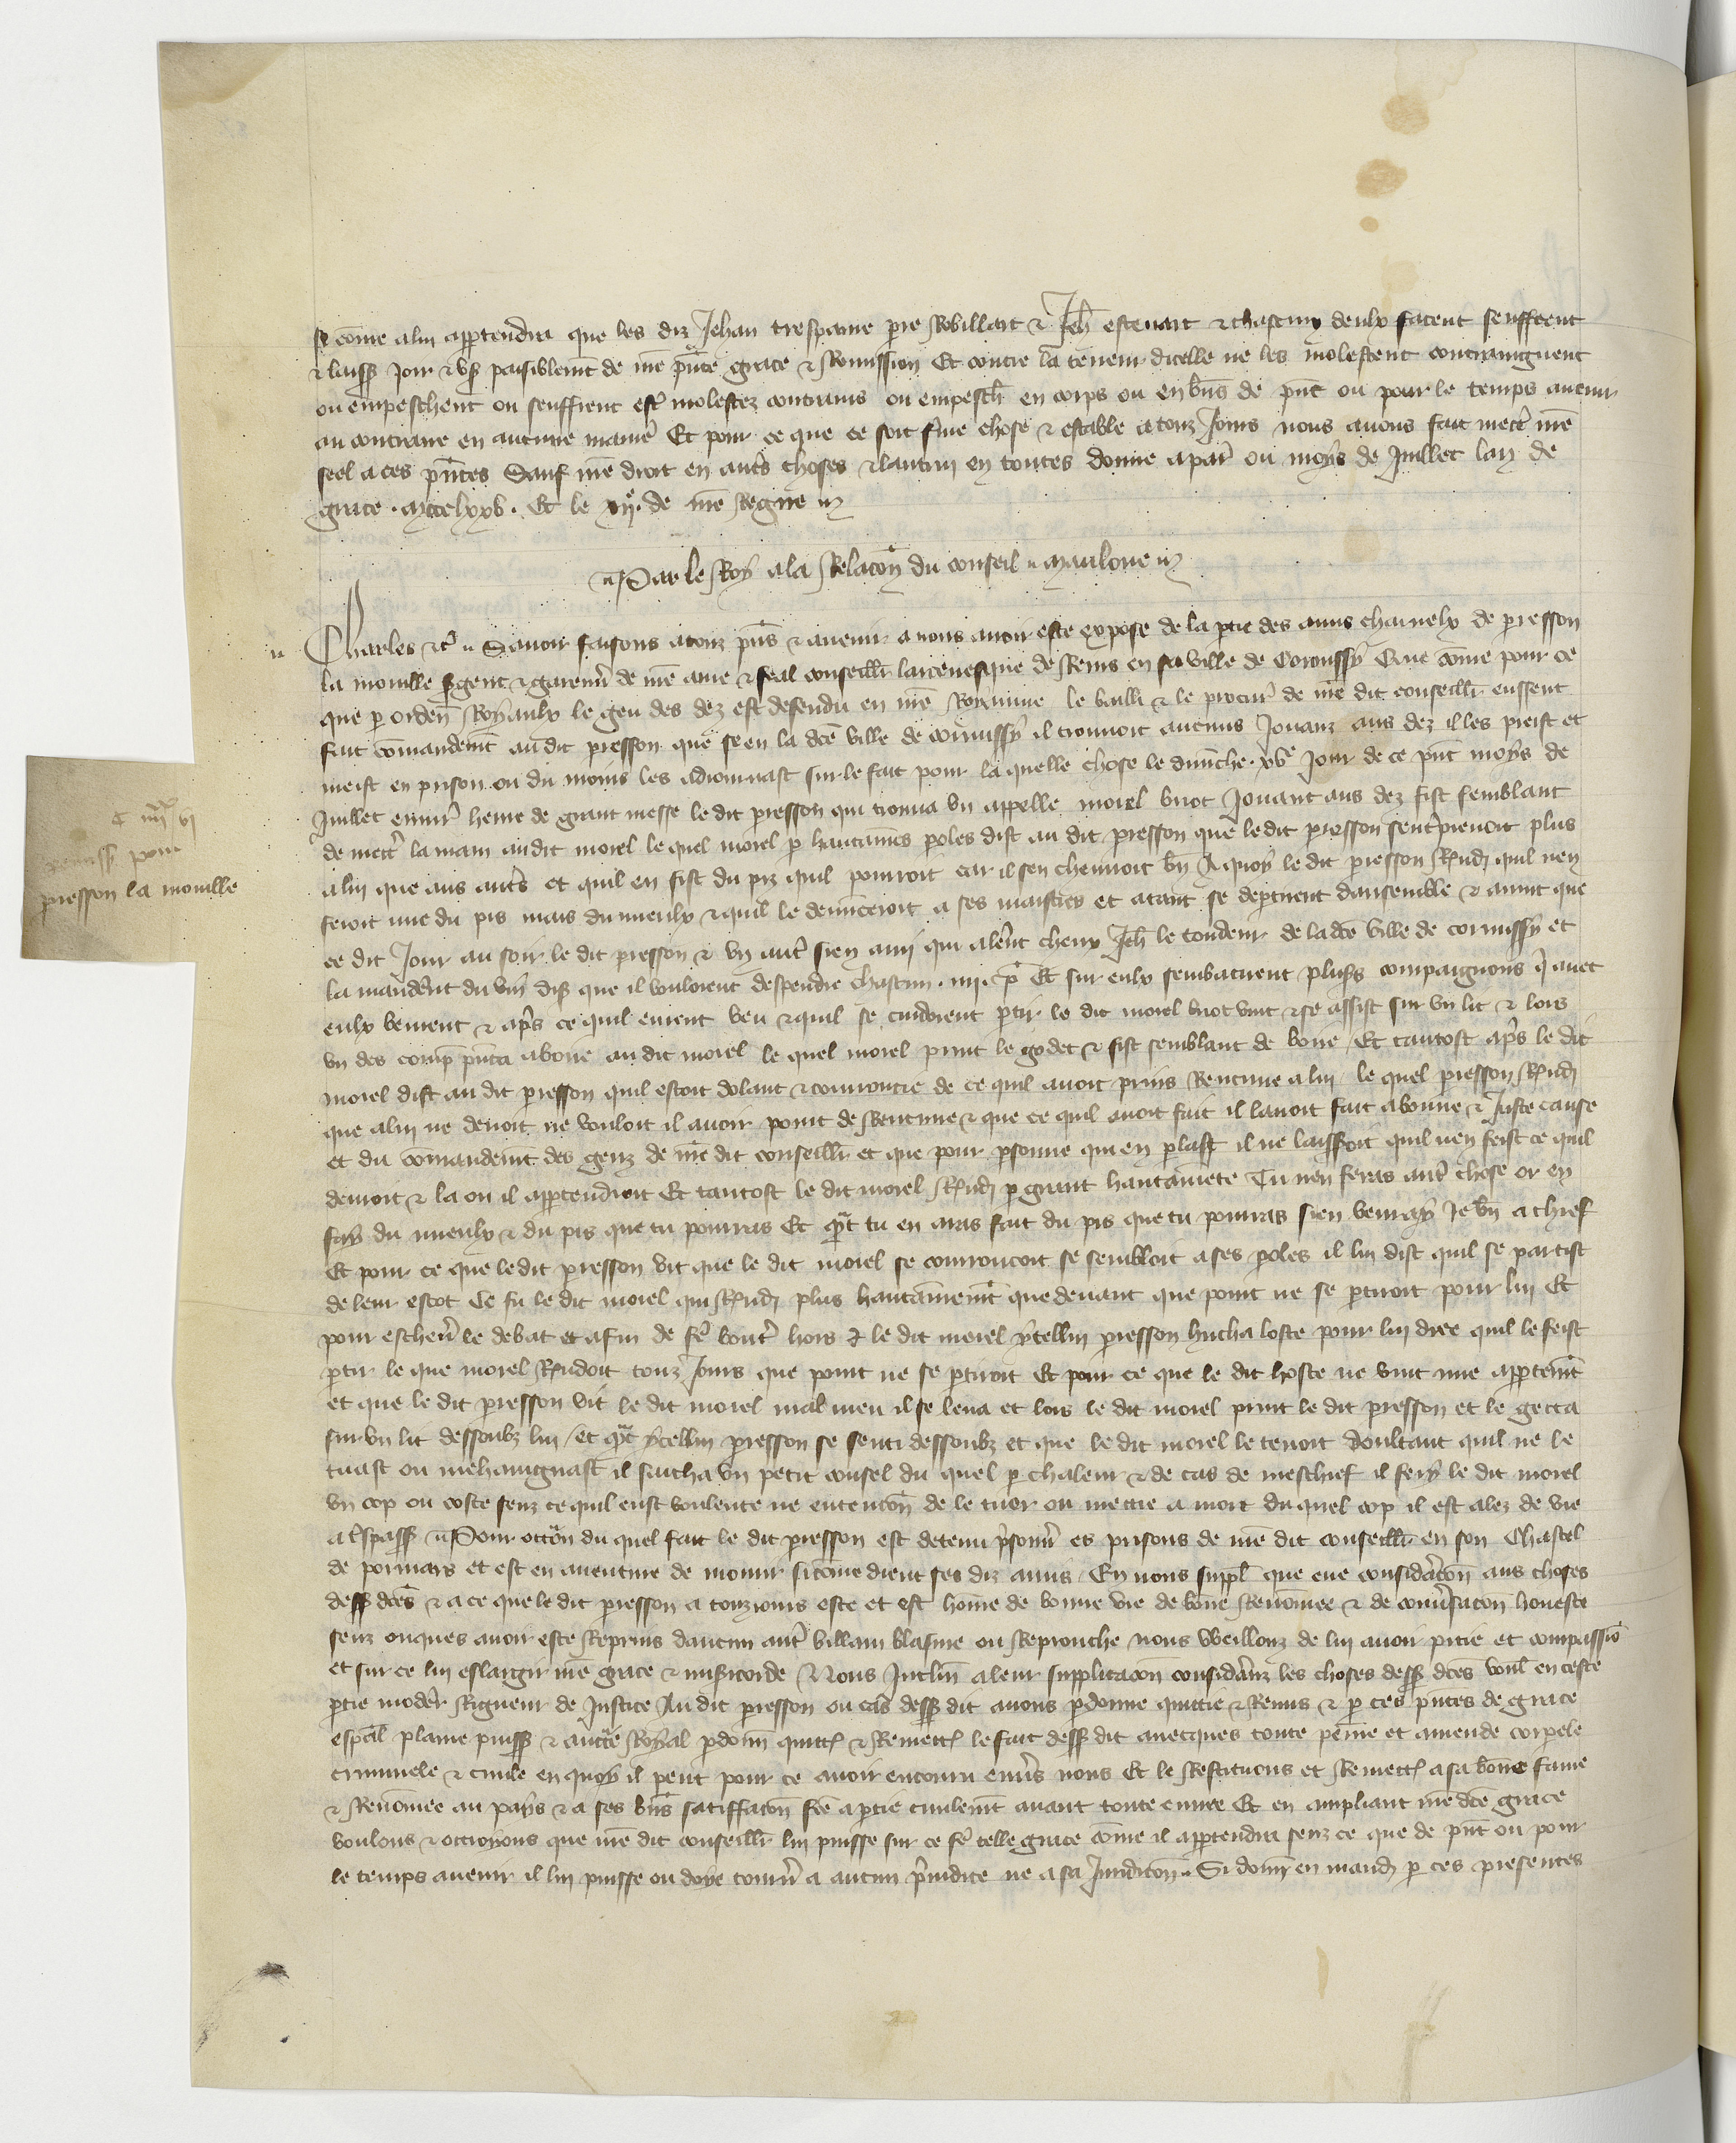 si cõme a lui appartendra que les diz Jehan trespame pre Robillart & Jeh̃ estevart & chascun deulx facent seuffrent
& laiss̃ joir & us̃ paisiblemt̃ de nr̃e pñte grace & Remission Et contre la teneur dicelle ne les molestent contraingnent
ou empeschent ou seuffrent estr̃ molestez contrains ou empesch̃ en corps ou en bñs de pñt ou pour le temps avenir
au contraire en aucune manier̃ Et pour ce que ce soit ferme chose & estable a touz Jours nous avons fait mettr̃ nr̃e
seel a ces pñtes Sauf nr̃e droit en autr̃s choses & lautruy en toutes donne a par̃ ou moys de Juillet lan de
grace . mccclxxv . Et le xijᵉ . de nr̃e Regne
Par le Roy a la Relacõn du conseil Mauloue
Charles &c̃ Savoir faisons a touz pñs & avenir a nous avoir este expose de la ptie des amis charnelx de presson
la mouille sergent & garenñ de nr̃e ame & feal conseill̃r larcevesque de Reins en sa ville de Cormissy Que cõme pour ce
que p ordeñ Royaulx le geu des dez est defendu en nr̃e Royaume le bailli & le procur̃ de nr̃e dit conseill̃r eussent
fait cõmandemt̃ au dit presson que se en la dc̃e ville de cormissy il trouvoit aucuns Jouanz aus dez il les preist et
meist en prison ou du moins les adiournast sur le fait pour la quelle chose le dimẽche . xvᵉ Jour de ce pñt moys de
Juillet envir̃ heure de grant messe le dit presson qui trouva un appelle morel buot Jouant aus dez fist semblant
de mettr̃ la main au dit morel le quel morel p hautaines poles dist au dit presson que le dit presson sentrprenoit plus
a lui que aus autr̃s et quil en fist du piz quil pourroit car il sen chevroit bñ A quoy le dit presson Rñd quil nen
feroit mie du pis mais du mieulx & quil le denũceroit a ses maistres et atant se deptirent dansemble & avint que
ce dit Jour au soir le dit presson & un autr̃ sien ami qui alerẽt cheux Jeh̃ le tondeur de la dc̃e ville de cormissy et
la mãderẽt du vin diss̃ que il vouloient despendre chascun . iiij . p̃ Et sur eulx sembatirent plus̃s compaignons q̃ avec
eulx burent & ap̃s ce quil eurent beu & quil se cuidoient ptir le dit morel buot vint & se assist sur un lit & lors
un des comp̃ pñta a boire au dit morel le quel morel print le godet & fist semblant de boire / Et tantost ap̃s le dit
morel dist au dit presson quil estoit dolant & courroucie de ce quil avoit prins Rencune a lui / le quel presson Rñd
que a lui ne devoit ne vouloit il avoir point de Rencune & que ce quil avoit fait il lavoit fait a bonne & Juste cause
et du cõmandemt̃ des genz de nr̃e dit conseill̃r et que pour psonne qui en plast il ne laisseroit quil nen feist ce quil
devroit & la ou il appartendroit Et tantost le dit morel Rñd p grant hautainete Tu nen feras autr̃ chose or en
fay du mieulx & du pis que tu pourras Et qũt tu en aras fait du pis que tu pourras sien venray Je bñ a chief
Et pour ce que le dit presson vit que le dit morel se courroucoit se sembloit a ses poles il lui dist quil se partist
de leur escot Ce fu le dit morel qui Rñd plus hautainemt̃ que devant que point ne se ptiroit pour lui Et
pour eschever̃ le debat et afin de fer̃ boutr̃ hors le dit morel ycellui presson hucha loste pour lui dire quil le feist
ptir le que morel Rñdoit touz Jours que point ne se ptiroit Et pour ce que le dit hoste ne vint mie appertemt̃
et que le dit presson vit le dit morel mal meu il se leva et lors le dit morel print le dit presson et le getta
sur un lit dessoubz lui / et qũt ycellui presson se senti dessoubz et que le dit morel le tenoit doubtant quil ne le
tuast ou mehaingnast il sacha un petit coustel du quel p chaleur & de cas de meschief il fery le dit morel
un cop ou coste senz ce quil eust voulente ne entencõn de le tuer ou mettre a mort du quel cop il est alez de vie
a tr̃spass̃ Pour occõn du quel fait le dit presson est detenu prisonñ es prisons de nr̃e dit conseill̃r en son Chastel
de pormars et est en aventure de mourir si cõme dient ses diz amis / En nous suppl̃ que eue consideracõn aus choses
dess̃ dc̃es & a ce que le dit presson a touz jours este et est hõme de bonne vie de bõne Renõmee & de convrsacõn honeste
senz onques avoir este Reprins daucun autr̃ villain blasme ou Reprouche nous vueillons de lui avoir pitie et compassiõ
et sur ce lui eslargir nr̃e grace & misericorde Nous Inclin̄ a leur supplicacõn considerãnz les choses dess̃ dc̃es voul̃ en ceste
ptie moderer Rigueur de Justice Au dit presson ou cas dess̃ dit avons pdonne quittie & Remis & p ces pñtes de grace
esp̃al plaine puiss̃ & auctẽ Royal pdonñ quitt̃ & Remett̃ le fait dess̃ dit avecques toute peine et amende corpele
criminele & civile en quoy il peut pour ce avoir encouru envr̃s nous Et le Restituons et Remett̃ a sa bõne fame
& Renõmee au pays & a ses bñs satiffacõn fc̃e a ptie civilemt̃ avant toute euvre Et en ampliant nr̃e dc̃e grace
voulons & octroyons que nr̃e dit conseill̃r lui puisse sur ce fer̃ telle grace cõme il appartendra senz ce que de pñt ou pour
le temps avenir il lui puisse ou doye tourñ a aucun prejudice ne a sa Juridicõn . Si donñ en mand̃ p ces presentes
iiijˣˣ vj
Remiss̃ pour
presson la mouille